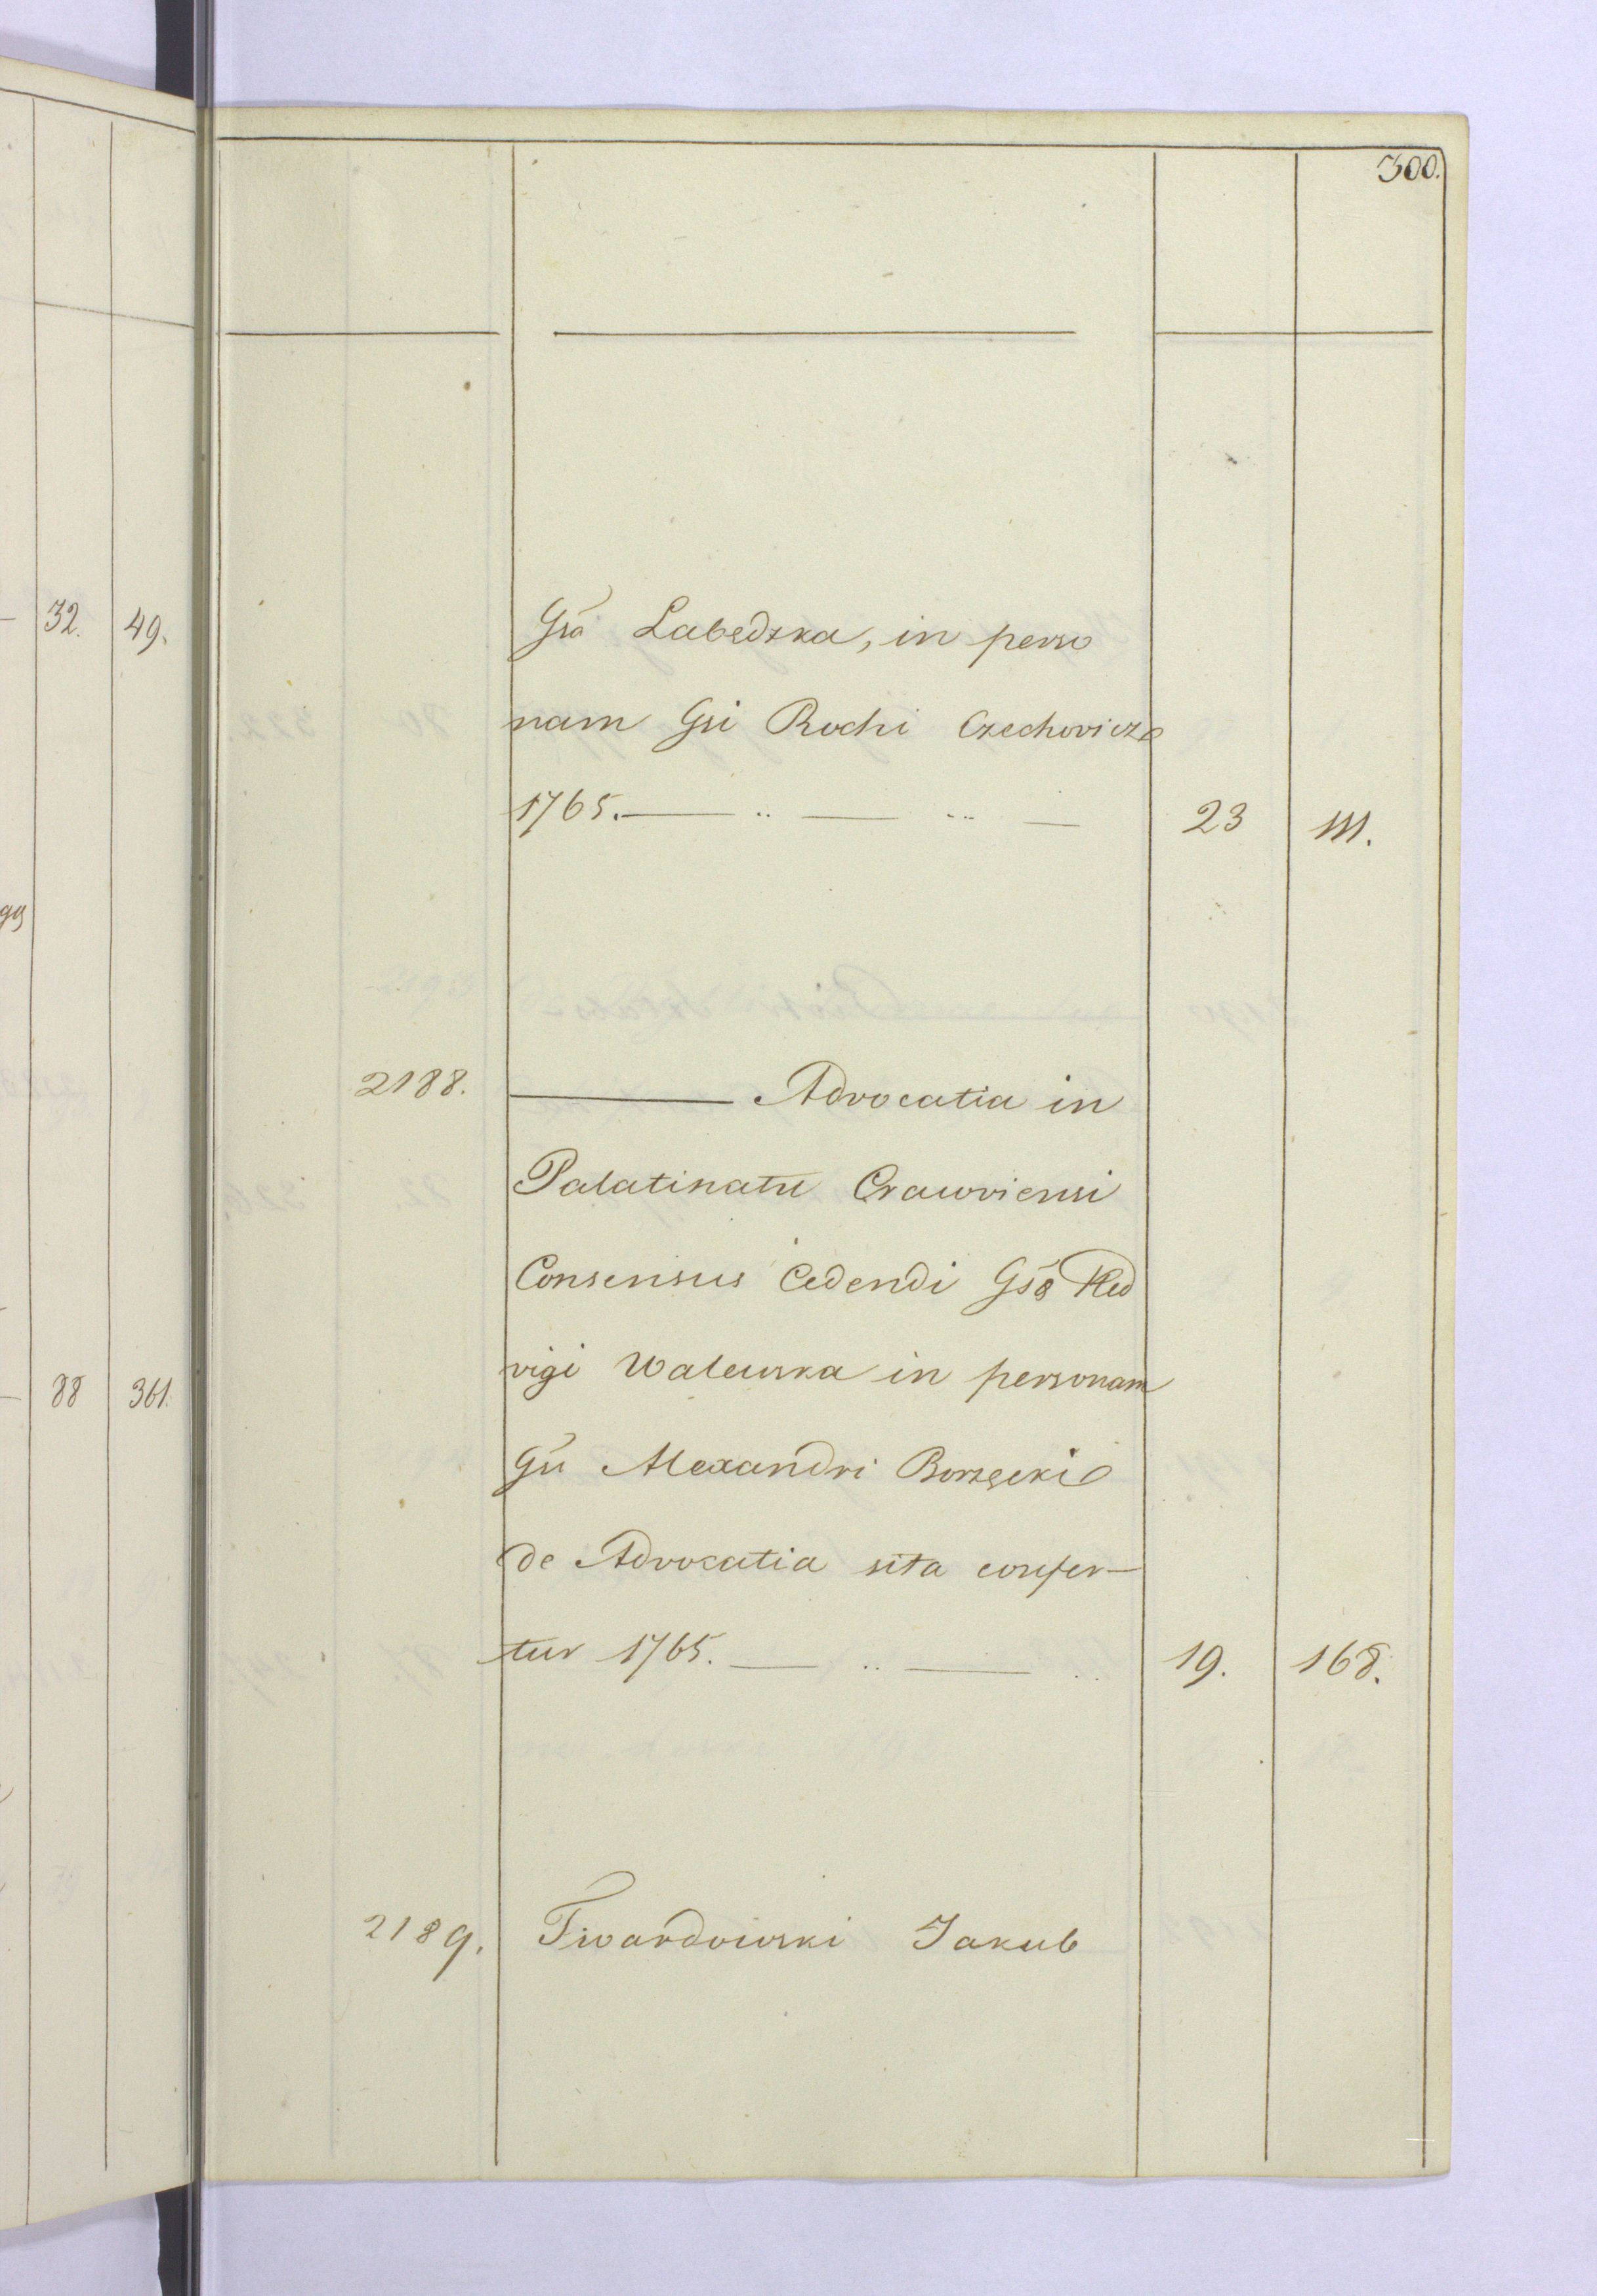 300.
32. 49.
Gsa Labędzka, in perso
nam Gsi Rochi Czechovicz
1765. — .. — ... — 23 111.
gg
2188. ——— Advocatia in
Palatinatu Cracoviensi
Consensus Cedendi Gsa Hed
88 361.
vigi Walewska in personam
Gsi Alexandri Borzęcki
de Advocatia sita confer—
tur 1765. — .. — .. 19. 168.
2189. Twardowski Jakub